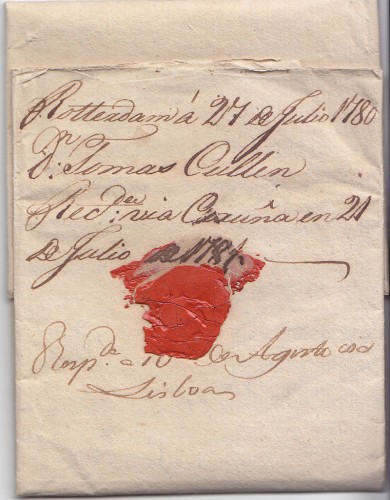 Rotterdam á 27 de Julio 1780
Dn. Tomas Cullen
Recda. via Coruña en 21
de Julio de 1781
Respda. a 10 de Agosto
Lisboa